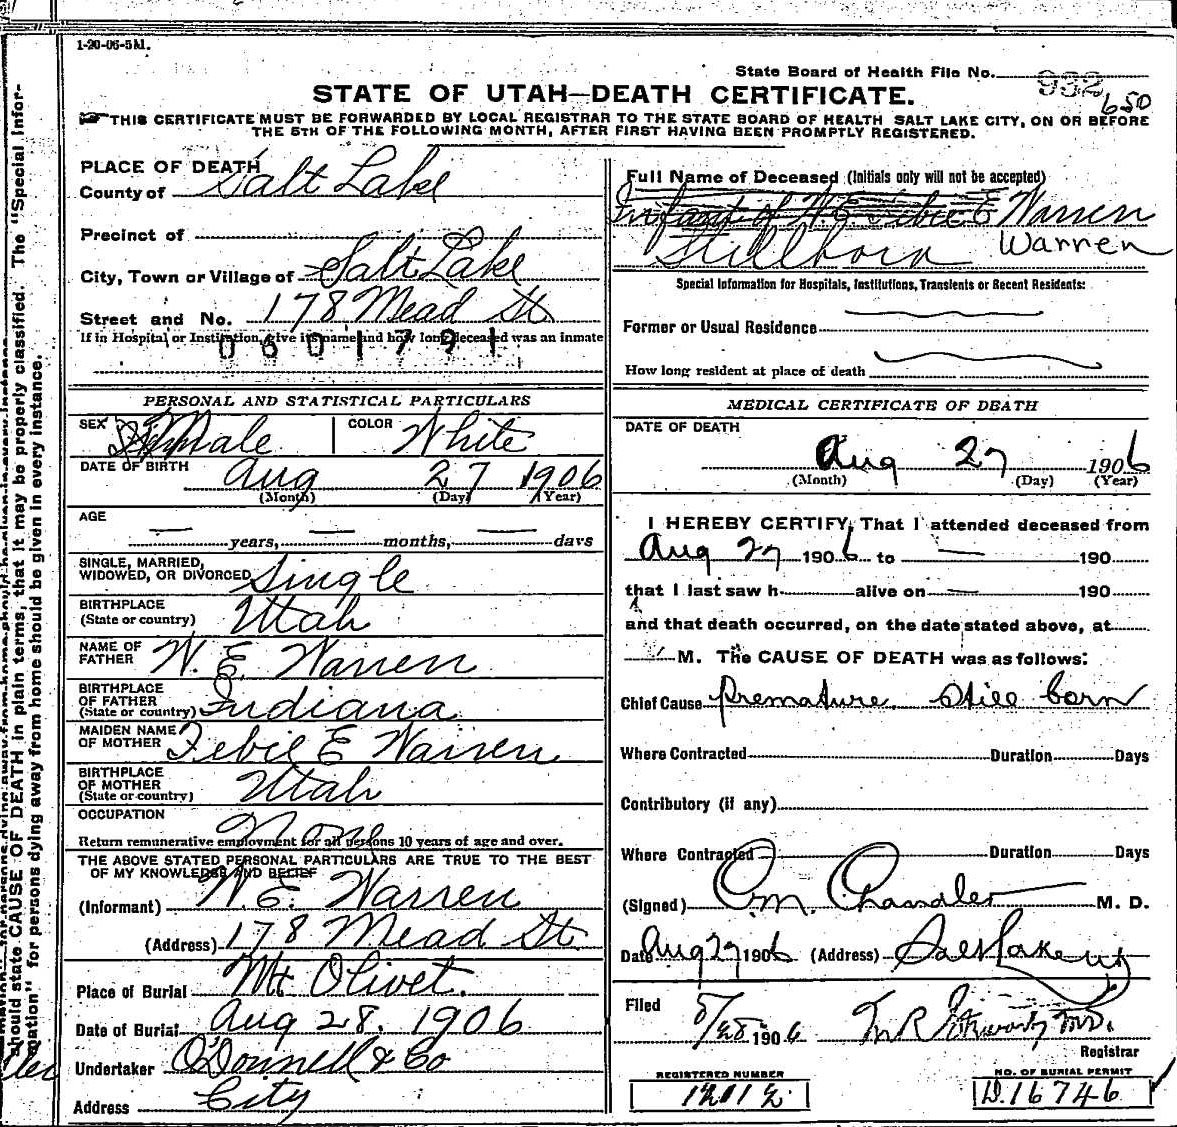 1-20-06-5M.
State Board of Health File No. 932
650
STATE OF UTAH—DEATH CERTIFICATE.
THIS CERTIFICATE MUST BE FORWARDED BY LOCAL REGISTRAR TO THE STATE BOARD OF HEALTH SALT LAKE CITY, ON OR BEFORE
THE 5TH OF THE FOLLOWING MONTH, AFTER FIRST HAVING BEEN PROMPTLY REGISTERED.
PLACE OF DEATH
County of Salt Lake
Precinct of
City, Town or Village of Salt Lake
Street and No. 178 Mead St
If in Hospital or Institution, give its name and how long deceased was an inmate
0601791
PERSONAL AND STATISTICAL PARTICULARS
SEX Male COLOR White
DATE OF BIRTH Aug 27 1906
(Month) (Day) (Year)
AGE
— years, — months, — days
SINGLE, MARRIED,
WIDOWED, OR DIVORCED Single
BIRTHPLACE
(State or country) Utah
NAME OF
FATHER W. E. Warren
BIRTHPLACE
OF FATHER
(State or country) Indiana
MAIDEN NAME
OF MOTHER Tebie E Warren
BIRTHPLACE
OF MOTHER
(State or country) Utah
OCCUPATION None
Return remunerative employment for all persons 10 years of age and over.
THE ABOVE STATED PERSONAL PARTICULARS ARE TRUE TO THE BEST
OF MY KNOWLEDGE AND BELIEF
(Informant) W. E. Warren
(Address) 178 Mead St.
Place of Burial Mt Olivet.
Date of Burial Aug 28. 1906
Undertaker O'Donnell & Co
Address City
Full Name of Deceased (Initials only will not be accepted)
Infant of W E Tebie E Warren
Stillborn Warren
Special Information for Hospitals, Institutions, Transients or Recent Residents:
Former or Usual Residence
How long resident at place of death
MEDICAL CERTIFICATE OF DEATH
DATE OF DEATH
Aug 27 1906
(Month) (Day) (Year)
I HEREBY CERTIFY, That I attended deceased from
Aug 27 1906 to — 190
that I last saw h alive on — 190
and that death occurred, on the date stated above, at
M. The CAUSE OF DEATH was as follows:
Chief Cause Premature Still born
Where Contracted Duration Days
Contributory (if any)
Where Contracted Duration Days
(Signed) O.M. Chandler M. D.
Date Aug 27 1906 (Address) Salt Lake Ut
Filed 8/28 1906 M.D.
Registrar
REGISTERED NUMBER
NO. OF BURIAL PERMIT
D.16746
should state CAUSE OF DEATH in plain terms, that it may be properly classified. The "Special Infor-
mation" for persons dying away from home should be given in every instance.